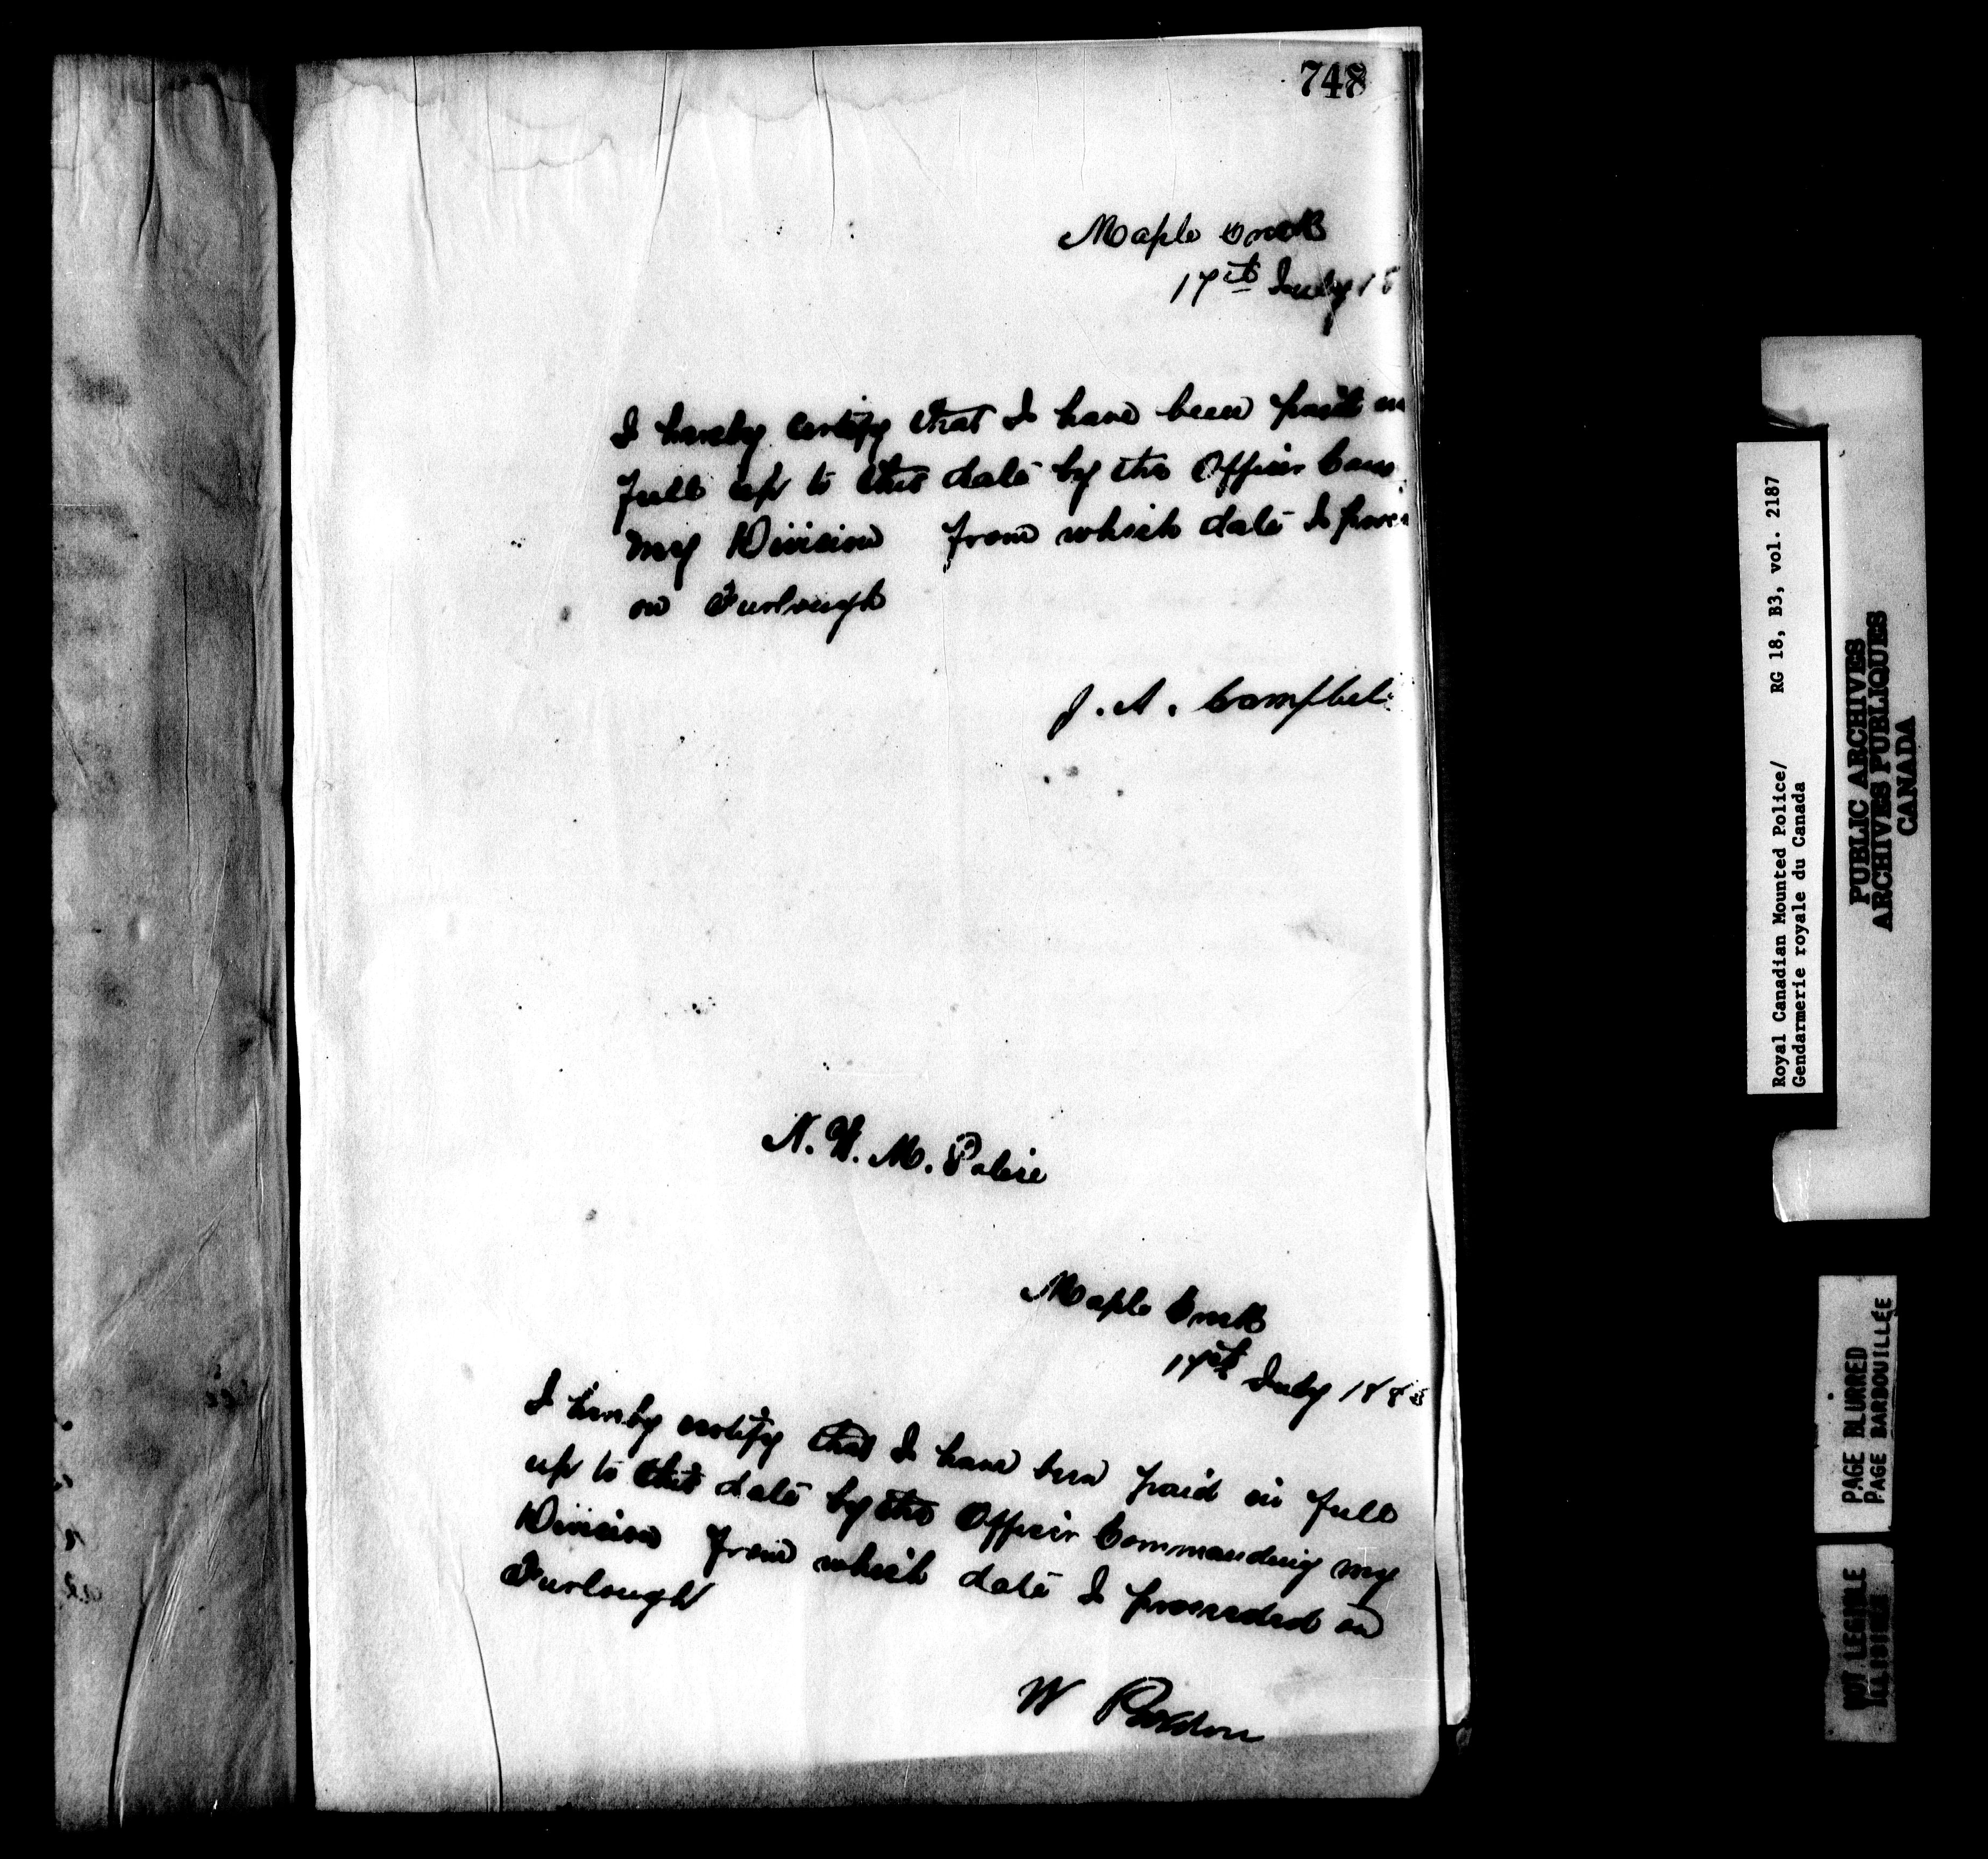 748
Maple Creek
17th July 18
I hereby certify that I have been paid in
full up to this date by the Officer Com
my Division from which date I procee
on Furlough
J. A. Campbel
N. W. M. Police
Maple Creek
17th July 188
I hereby certify that I have been paid in full
up to this date by the Officer Commanding my
Division from which date I proceeded on
Furlough
W
Royal Canadian Mounted Police/ RG 18, B3, vol. 2187
Gendarmerie royale du Canada
PUBLIC ARCHIVES
ARCHIVES PUBLIQUES
CANADA
PAGE BLURRED
PAGE BARBOUILLÉE
NOT LEGIBLE
ILLISIBLE